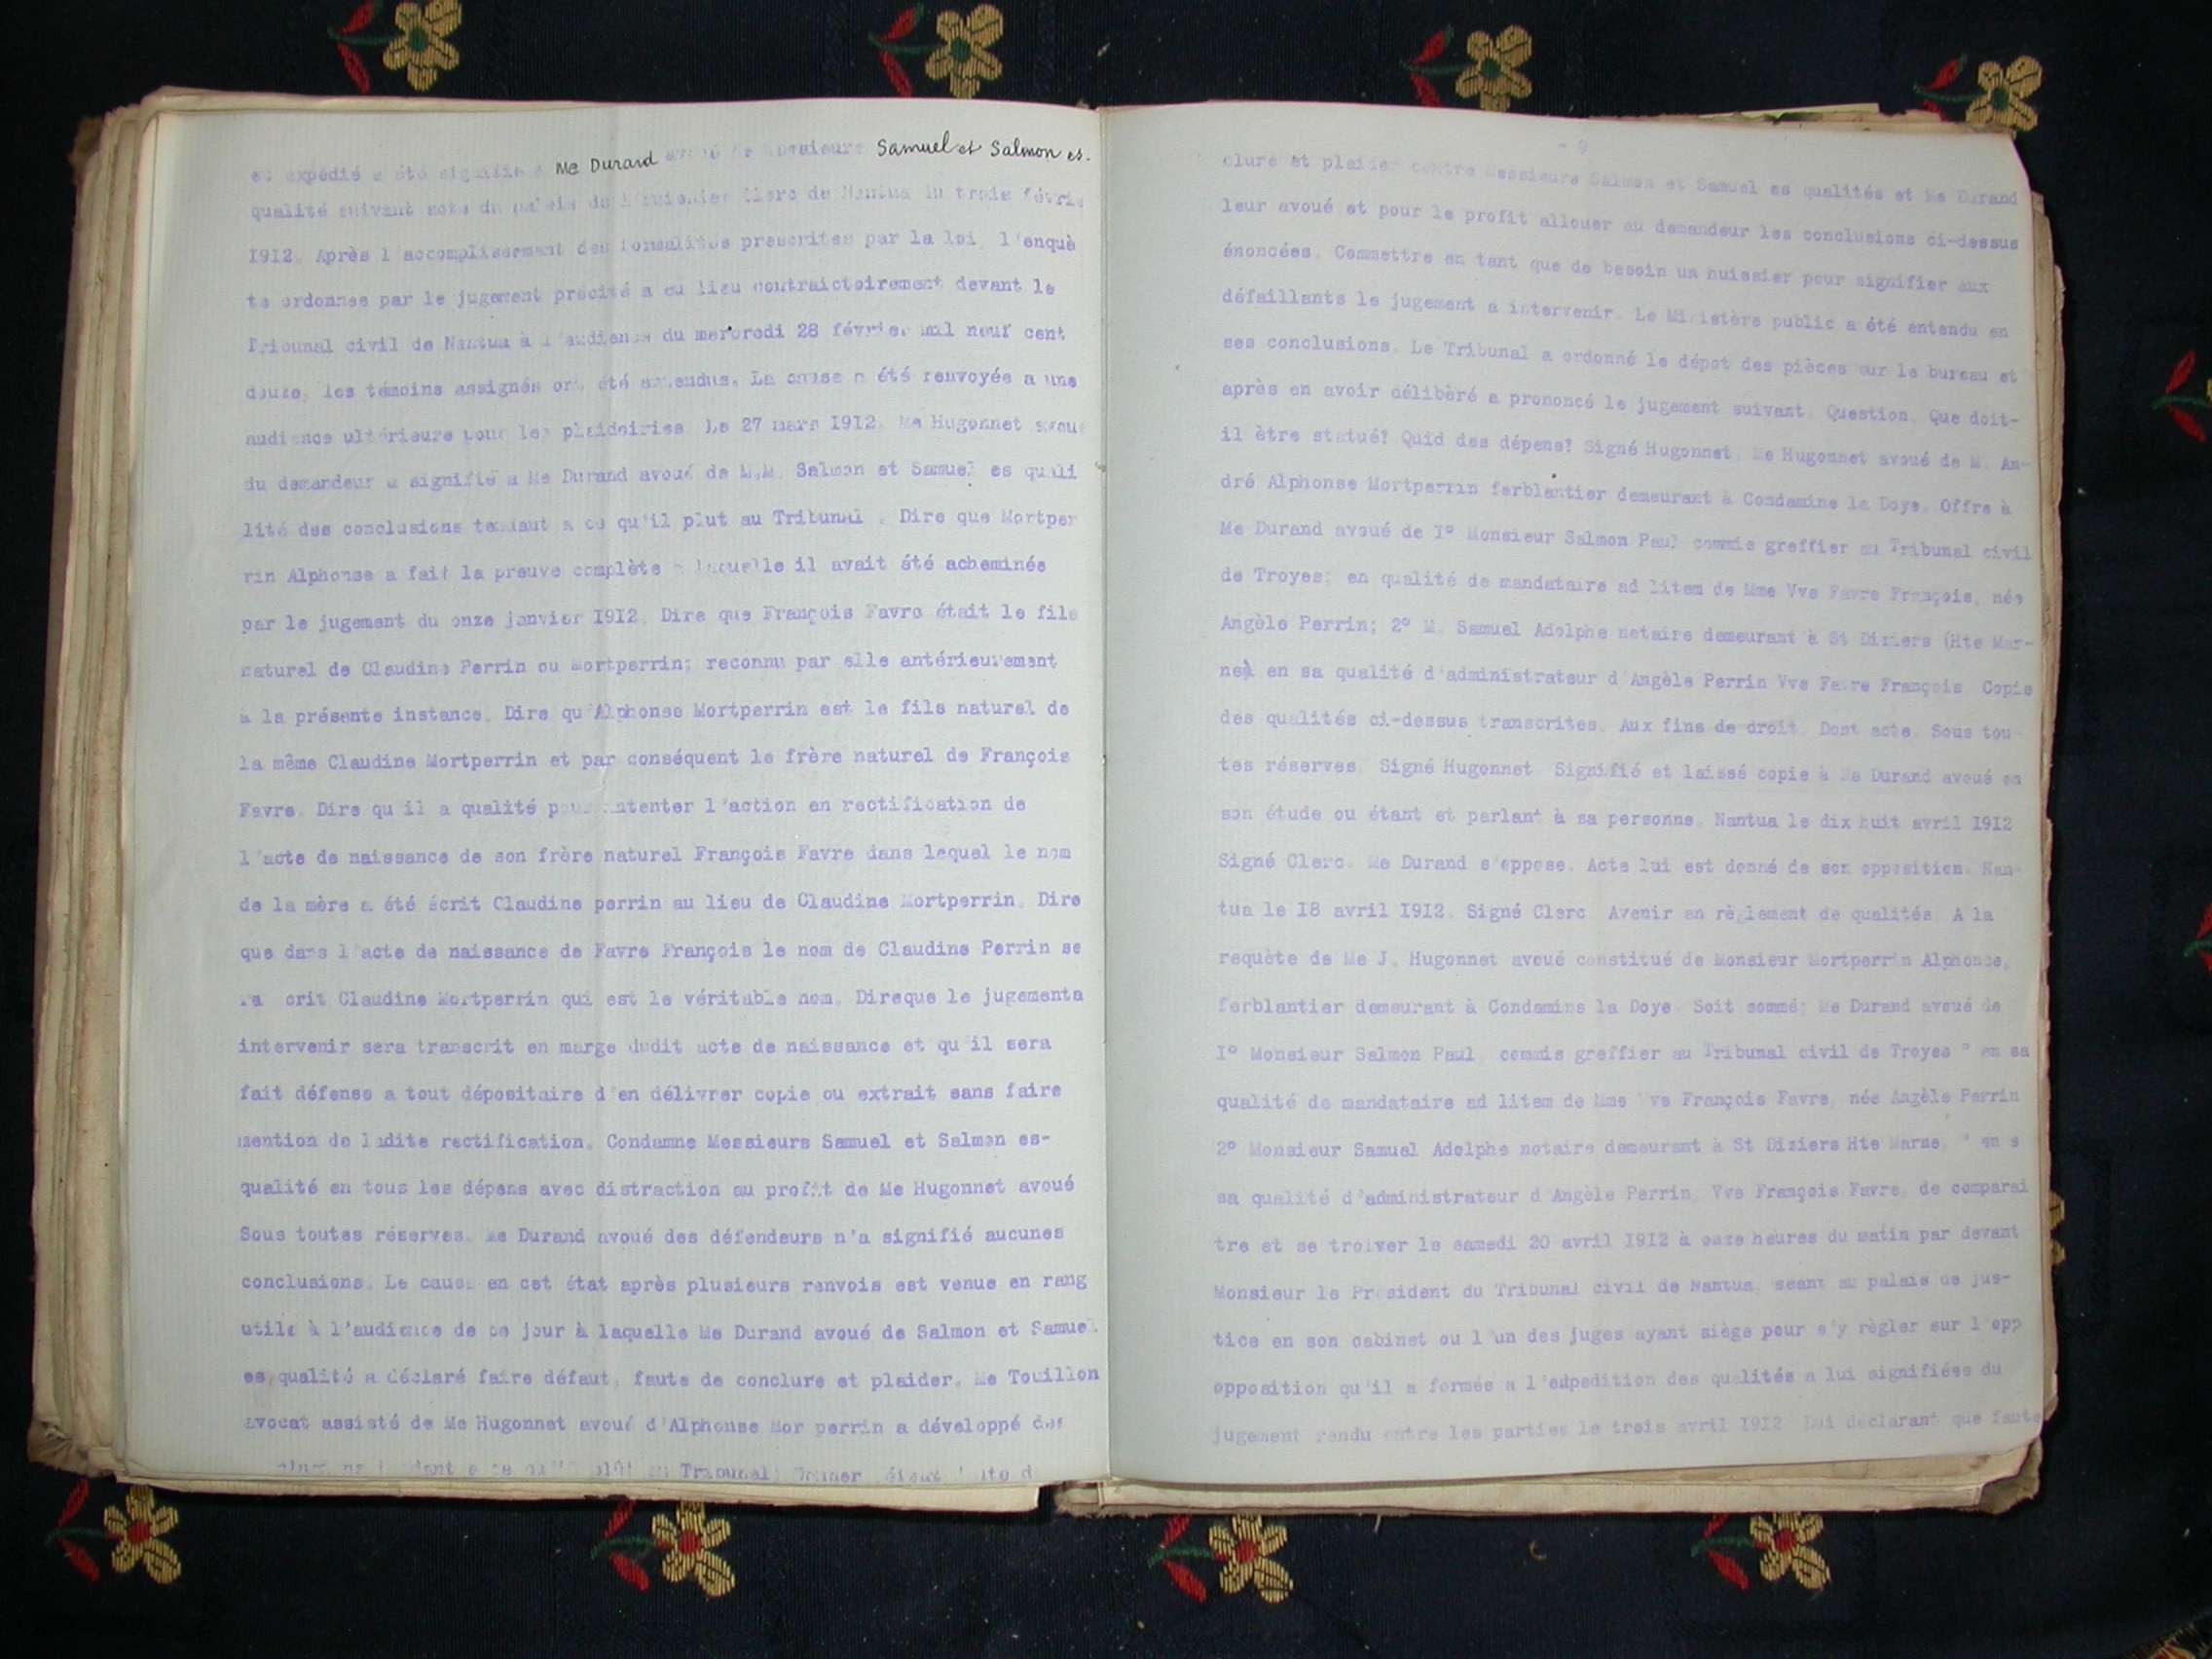 et expédié a été signifié a Me Durand avoué de Messieurs Samuel et Salmon es.
qualité suivant acte du palais de l'huissier Clerc de Nantua du trois févrie
1912. Après l'accomplissement des formalités prescrites par la loi, l'enquè
te ordonnee par le jugement precité a eu lieu contraictoirement devant le
Tribunal civil de Nantua à l'audience du mercredi 28 février mil neuf cent
douze, les témoins assignés ont été entendus. La cause a été renvoyée a une
audience ultérieure pour les plaidoiries. Le 27 mars 1912. Me Hugonnet avoué
du demandeur a signifié a Me Durand avoué de M.M. Salmon et Samuel es quali
lité des conclusions tendant a ce qu'il plut au Tribunal. Dire que Mortper
rin Alphonse a fait la preuve complète a laquelle il avait été acheminée
par le jugement du onze janvier 1912. Dire que François Favre était le fils
naturel de Claudine Perrin ou Mortperrin; reconnu par elle antérieurement
a la présente instance. Dire qu'Alphonse Mortperrin est le fils naturel de
la même Claudine Mortperrin et par conséquent le frère naturel de François
Favre. Dire qu'il a qualité pour intenter l'action en rectification de
l'acte de naissance de son frère naturel François Favre dans lequel le nom
de la mère a été écrit Claudine perrin au lieu de Claudine Mortperrin. Dire
que dans l'acte de naissance de Favre François le nom de Claudine Perrin se
ra crit Claudine Mortperrin qui est le véritable nom. Direque le jugementa
intervenir sera transcrit en marge dudit acte de naissance et qu'il sera
fait défense a tout dépositaire d'en délivrer copie ou extrait sans faire
mention de ladite rectification. Condamne Messieurs Samuel et Salmon es-
qualité en tous les dépens avec distraction au profit de Me Hugonnet avoué
Sous toutes réserves. Me Durand avoué des défendeurs n'a signifié aucunes
conclusions. Le cause en cet état après plusieurs renvois est venue en rang
utile à l'audience de ce jour à laquelle Me Durand avoué de Salmon et Samuel
es qualité a déclaré faire défaut, faute de conclure et plaider. Me Touillon
avocat assisté de Me Hugonnet avoué d'Alphonse Mor perrin a développé des
plût au Tribunal; Donner
clure et plaider contre Messieurs Salmon et Samuel es qualités et Me Durand
leur avoué et pour le profit allouer au demandeur les conclusions ci-dessus
énoncées. Commettre en tant que de besoin un huissier pour signifier aux
défaillants le jugement a intervenir. Le Ministère public a été entendu en
ses conclusions. Le Tribunal a ordonné le dépot des pièces sur le bureau et
après en avoir délibèré a prononcé le jugement suivant. Question. Que doit-
il ètre statué? Quid des dépens? Signé Hugonnet. Me Hugonnet avoué de M. An-
dré Alphonse Mortperrin ferblantier demeurant à Condamine la Doye. Offre à
Me Durand avoué de 1° Monsieur Salmon Paul commis greffier au Tribunal civil
de Troyes; en qualité de mandataire ad litem de Mme Vve Favre François, née
Angèle Perrin; 2° M. Samuel Adolphe notaire demeurant à St Diziers (Hte Mar-
ne) en sa qualité d'administrateur d'Angèle Perrin Vve Favre François Copie
des qualités ci-dessus transcrites. Aux fins de droit. Dont acte. Sous tou-
tes réserves. Signé Hugonnet. Signifié et laissé copie à Me Durand avoué en
son étude ou étant et parlant à sa personne. Nantua le dix huit avril 1912
Signé Clerc. Me Durand s'oppose. Acte lui est donné de son opposition. Nan-
tua le 18 avril 1912. Signé Clerc. Avenir en règlement de qualités. A la
requète de Me J. Hugonnet avoué constitué de Monsieur Mortperrin Alphonse,
ferblantier demeurant à Condamine la Doye. Soit sommé; Me Durand avoué de
1° Monsieur Salmon Paul, commis greffier au Tribunal civil de Troyes " en sa
qualité de mandataire ad litem de Mme Vve François Favre, née Angèle Perrin
2° Monsieur Samuel Adolphe notaire demeurant à St Diziers Hte Marne, " en s
sa qualité d'administrateur d'Angèle Perrin, Vve François Favre, de comparai
tre et se trouver le samedi 20 avril 1912 à onze heures du matin par devant
Monsieur le President du Tribunal civil de Nantua, seant au palais de jus-
tice en son cabinet ou l'un des juges ayant siège pour s'y règler sur l'opp
opposition qu'il a formée a l'expedition des qualités a lui signifiées du
jugement rendu entre les parties le trois avril 1912 Lui déclarant que faute